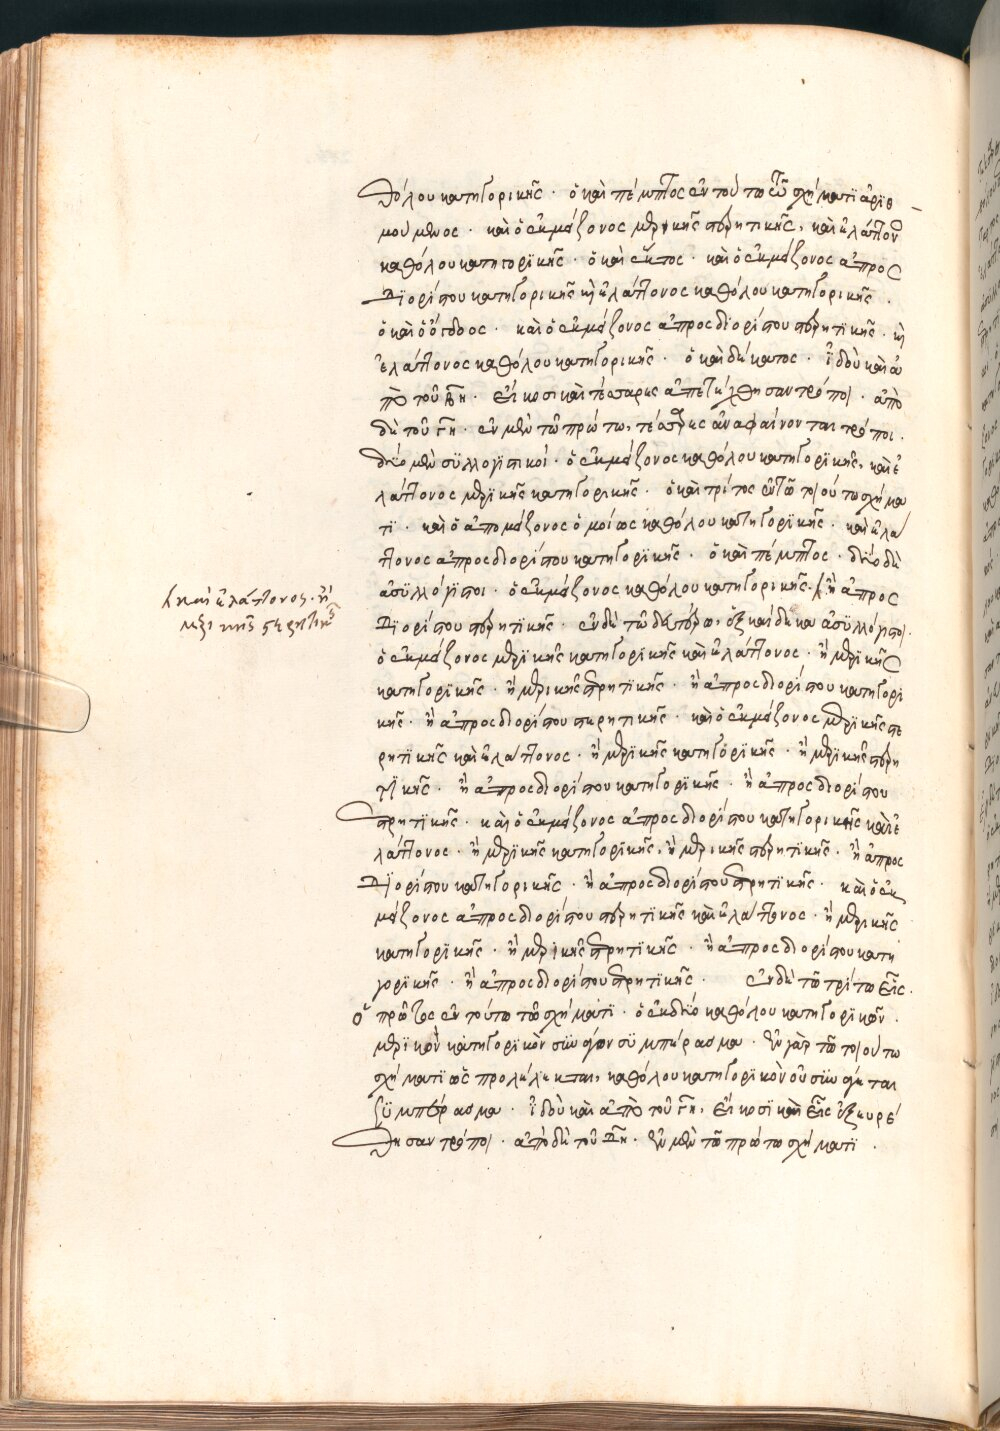 θόλου κατηγορικῆς · ὁ καὶ πέμπτος ἐν τούτω τῶ σχήματι ἀριθ
μούμενος · καὶ ὁ ἐκ μείζονος μερικῆς στερητικῆς, καὶ ἐλάττονος
καθόλου κατηγορικῆς · ὁ καὶ ἕκτος · καὶ ὁ ἐκ μείζονος ἀπροσ
διορίστου κατηγορικῆς καὶ ἐλάττονος καθόλου κατηγορικῆς ·
ὁ καὶ ὄγδοος · καὶ ὁ ἐκ μείζονος ἀπροσδιορίστου στερητικῆς · καὶ
ἐλάττονος καθόλου κατηγορικῆς · ὁ καὶ δέκατος · ἰδοὺ καὶ ἀ
πὸ τοῦ · εἴκοσι καὶ τέσσαρες ἀπετέχθησαν τρόποι · ἀπὸ
δὲ τοῦ · ἐν μὲν τῶ πρώτω, τέσσαρες ἀναφαίνονται τρόποι ·
δύο μὲν συλλογιστικοί · ὁ ἐκ μείζονος καθόλου κατηγορικῆς, καὶ ἐ
λάττονος μερικῆς κατηγορικῆς · ὁ καὶ τρίτος ἐν τῶ τοιούτω σχήμα
τι · καὶ ὁ ἀπὸ μείζονος ὁμοίως καθόλου κατηγορικῆς · καὶ ἐλά
ττονος ἀπροσδιορίστου κατηγορικῆς · ὁ καὶ πέμπτος · δύο δὲ
ἀσυλλόγιστοι · ὁ ἐκ μείζονος καθόλου κατηγορικῆς · ἢ ἀπροσ
καὶ ἐλάττονος · ἢ
μερικῆς στερητικῆς
διορίστου στερητικῆς · ἐν δὲ τῶ δευτέρω, ἑξκαίδεκα ἀσυλλόγιστοι ·
ὁ ἐκ μείζονος μερικῆς κατηγορικῆς καὶ ἐλάττονος · ἢ μερικῆς
κατηγορικῆς · ἢ μερικῆς στερητικῆς · ἢ ἀπροσδιορίστου κατηγορι
κῆς · ἢ ἀπροσδιορίστου στερητικῆς · καὶ ὁ ἐκ μείζονος μερικῆς στε
ρητικῆς καὶ ἐλάττονος · ἢ μερικῆς κατηγορικῆς · ἢ μερικῆς στερη
τικῆς · ἢ ἀπροσδιορίστου κατηγορικῆς · ἢ ἀπροσδιορίστου
στερητικῆς · καὶ ὁ ἐκ μείζονος ἀπροσδιορίστου κατηγορικῆς καὶ ἐ
λάττονος · ἢ μερικῆς κατηγορικῆς, ἢ μερικῆς στερητικῆς · ἢ ἀπροσ
διορίστου κατηγορικῆς · ἢ ἀπροσδιορίστου στερητικῆς · καὶ ὁ ἐκ
μείζονος ἀπροσδιορίστου στερητικῆς καὶ ἐλάττονος · ἢ μερικῆς
κατηγορικῆς · ἢ μερικῆς στερητικῆς · ἢ ἀπροσδιορίστου κατη
γορικῆς · ἢ ἀπροσδιορίστου στερητικῆς · ἐν δὲ τῶ τρίτω εἷς ·
ὁ πρῶτος ἐν τούτω τῶ σχήματι · ὁ ἐκ δύο καθόλου κατηγορικῶν ·
μερικὸν κατηγορικὸν συνάγων συμπέρασμα · ἐν γὰρ τῶ τοιούτω
σχήματι ὡς προλέλεκται, καθόλου κατηγορικὸν οὐ συνάγεται
συμπέρασμα · ἰδοὺ καὶ ἀπὸ τοῦ, εἴκοσι καὶ εἷς ἐξηυρέ
θησαν τρόποι · ἀπὸ δὲ τοῦ · ἐν μὲν τῶ πρώτω σχήματι ·